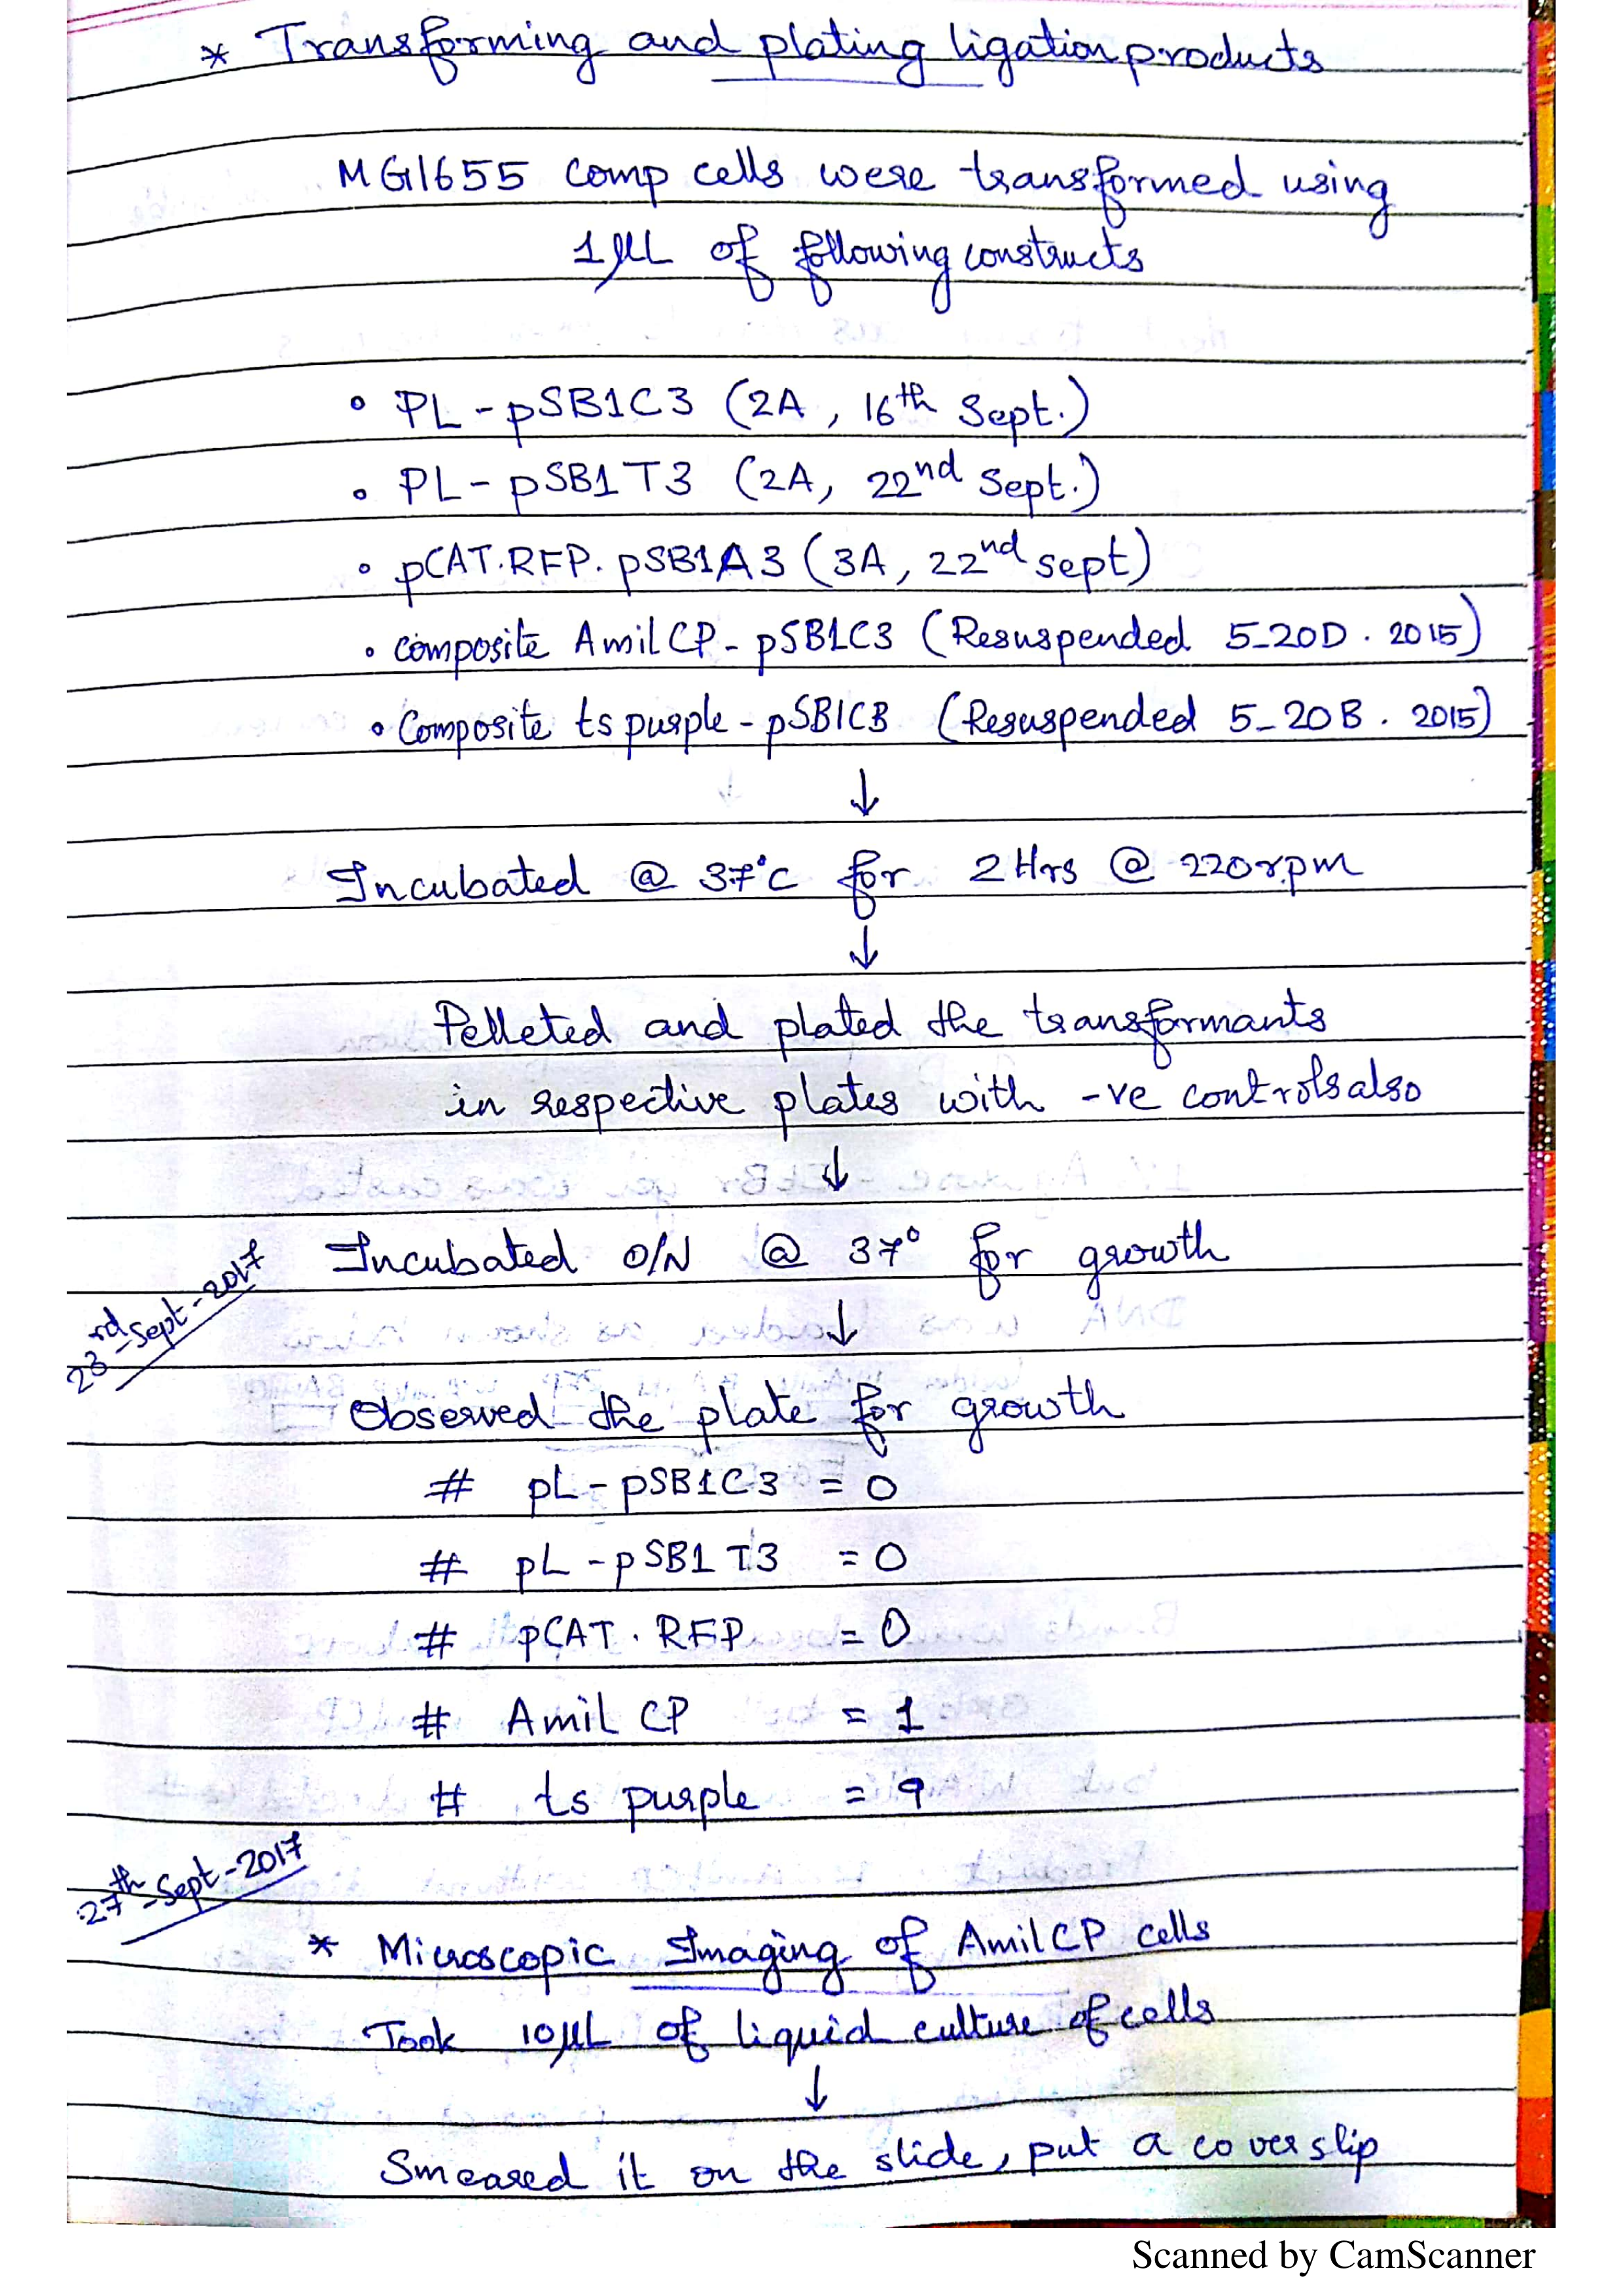 * Transforming and plating ligation products
MG1655 comp cells were transformed using
1 μL of following constructs
• PL - pSB1C3 (2A, 16th Sept.)
• PL - pSB1T3 (2A, 22nd Sept.)
• pCAT.RFP.pSB1A3 (3A, 22nd sept)
• composite AmilCP - pSB1C3 (Resuspended 5-20D . 2015)
• Composite ts purple - pSB1C3 (Resuspended 5-20B . 2015)
↓
Incubated @ 37°C for 2 Hrs @ 220 rpm
↓
Pelleted and plated the transformants
in respective plates with -ve controls also
↓
Incubated O/N @ 37° for growth
23rd-Sept-2017
↓
Observed the plate for growth
# pL - pSB1C3 = 0
# pL - pSB1T3 = 0
# pCAT . RFP = 0
# Amil CP = 1
# ts purple = 9
27th-Sept-2017
* Microscopic Imaging of AmilCP cells
Took 10 μL of liquid culture of cells
↓
Smeared it on the slide, put a coverslip
Scanned by CamScanner